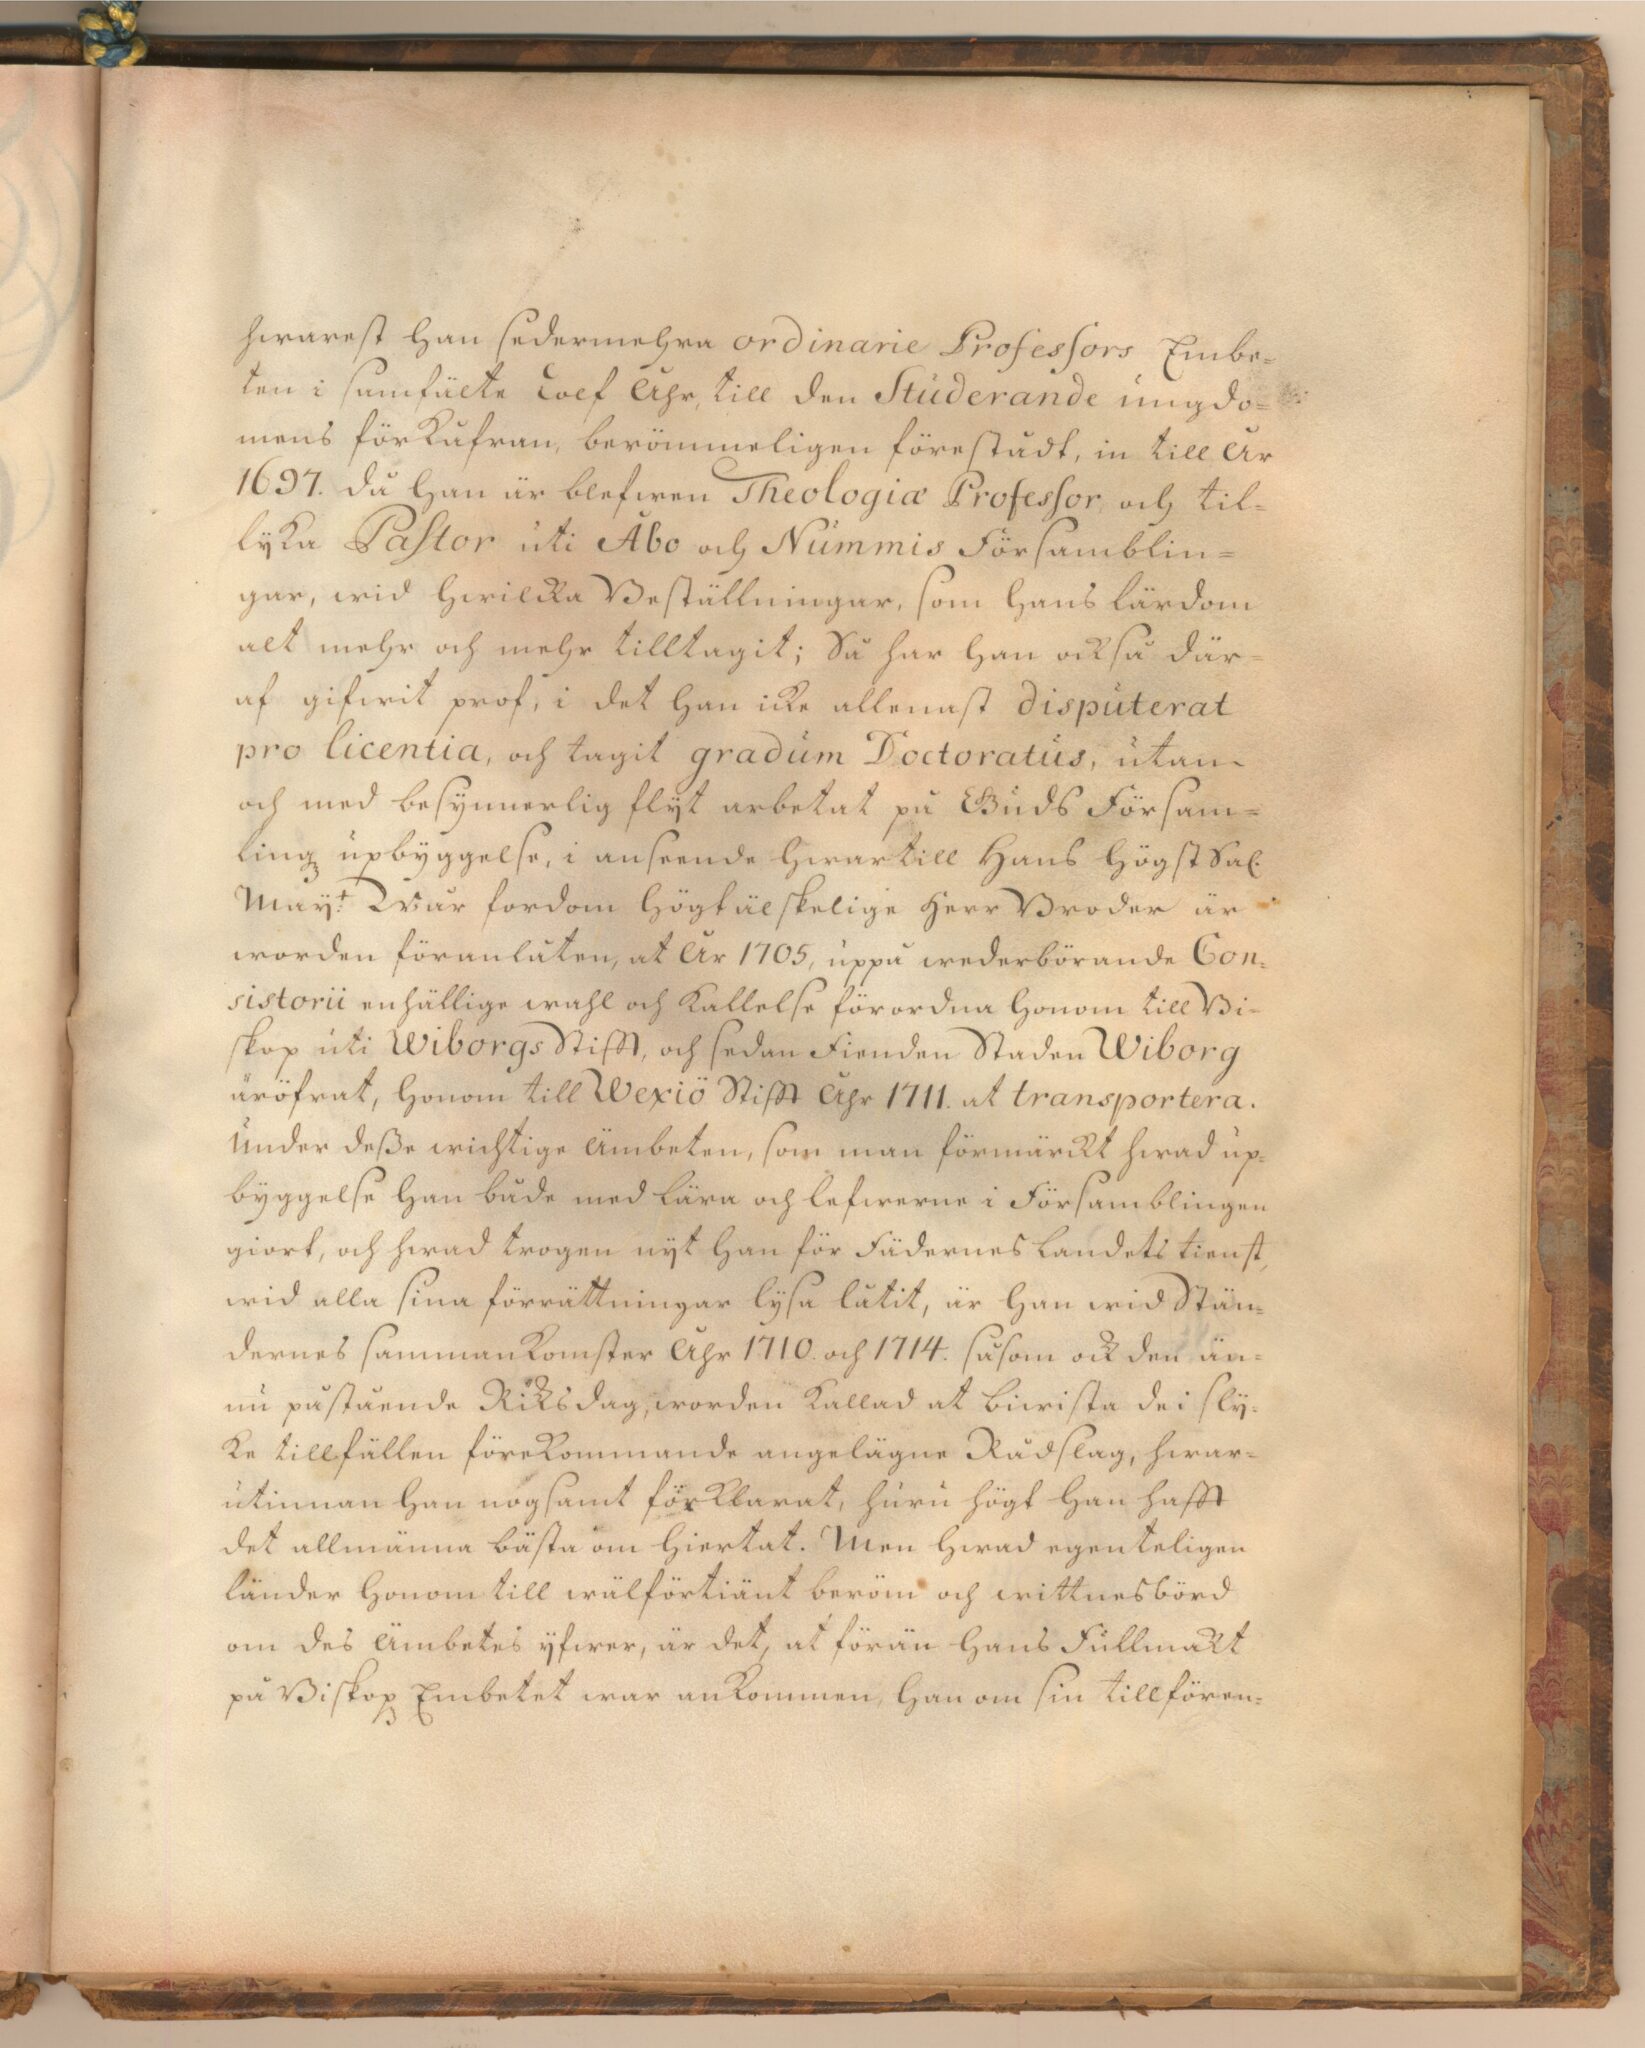 hwarest Han sedermehra ordinarie Professors Embe-
ten i samfälte Tolf Åhr, till den Studerande ungdo-
mens förkåfran, berömmeligen förestådt, in till År
1697. då Han är blefwen Theologiæ Professor, och til-
lyka Pastor uti Åbo och Nummis Församblin-
gar, wid Hwilcka Beställningar, som Hans lärdom
alt mehr och mehr tilltagit; Så har Han också där-
af gifwit prof, i det Han icke allenast disputerat
pro licentia, och tagit gradum Doctoratus, utan
och med besynnerlig flyt arbetat på Guds Försam-
ling upbyggelse, i anseende Hwartill Hans Högst Sal.
Mayt: Wår fordom Högt älskelige Herr Broder är
worden föranlåten, at År 1705, uppå wederbörande Con-
sistorii enhällige wahl och Kallelse förordna Honom till Bi-
skop uti Wiborgs Stifft, och sedan Fienden Staden Wiborg
äröfrat, Honom till Wexiö Stifft Åhr 1711. at transportera.
Under deße wichtige Ämbeten, som man förmärckt hwad up-
byggelse Han både med Lära och lefwerne i Församblingen
giort, och hwad trogen nyt Han för Fädernes Landets tienst,
wid alla sina förrättningar lysa låtit, är Han wid Stän-
dernes sammankomster Åhr 1710. och 1714. såsom ock den än-
nu påstående Riksdag, worden Kallad at biwista de i sly-
ke tillfällen förekommande angelägne Rådslag, hwar-
utinnan Han nogsamt förklarat, huru högt Han hafft
det allmänna bästa om Hiertat. Men Hwad egenteligen
länder Honom till wälförtiänt beröm och wittnesbörd
om des Ämbetes yfwer, är det, at förän Hans Fullmakt
på Biskop Embetet war ankommen, Han om sin tillfören-